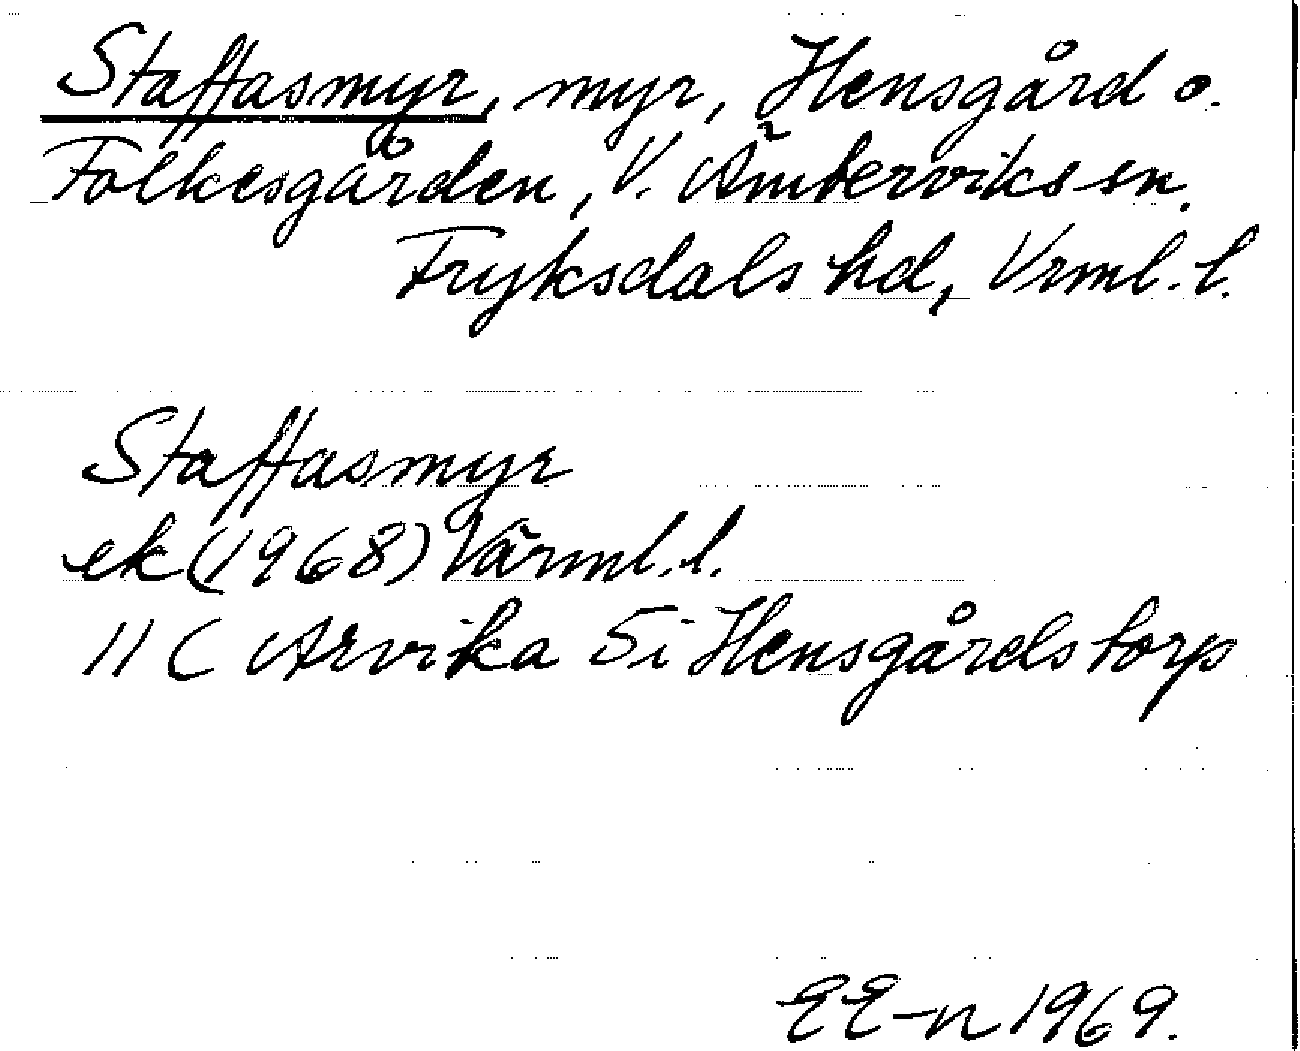 Staffasmyr, myr, Hensgård o.
Folkesgården, V. Ämterviks sn.
Fryksdals hd, Vrml. l.
Staffasmyr
ek (1968) Värml. l.
11 C Arvika 5i Hensgårdstorp
EE-n 1969.